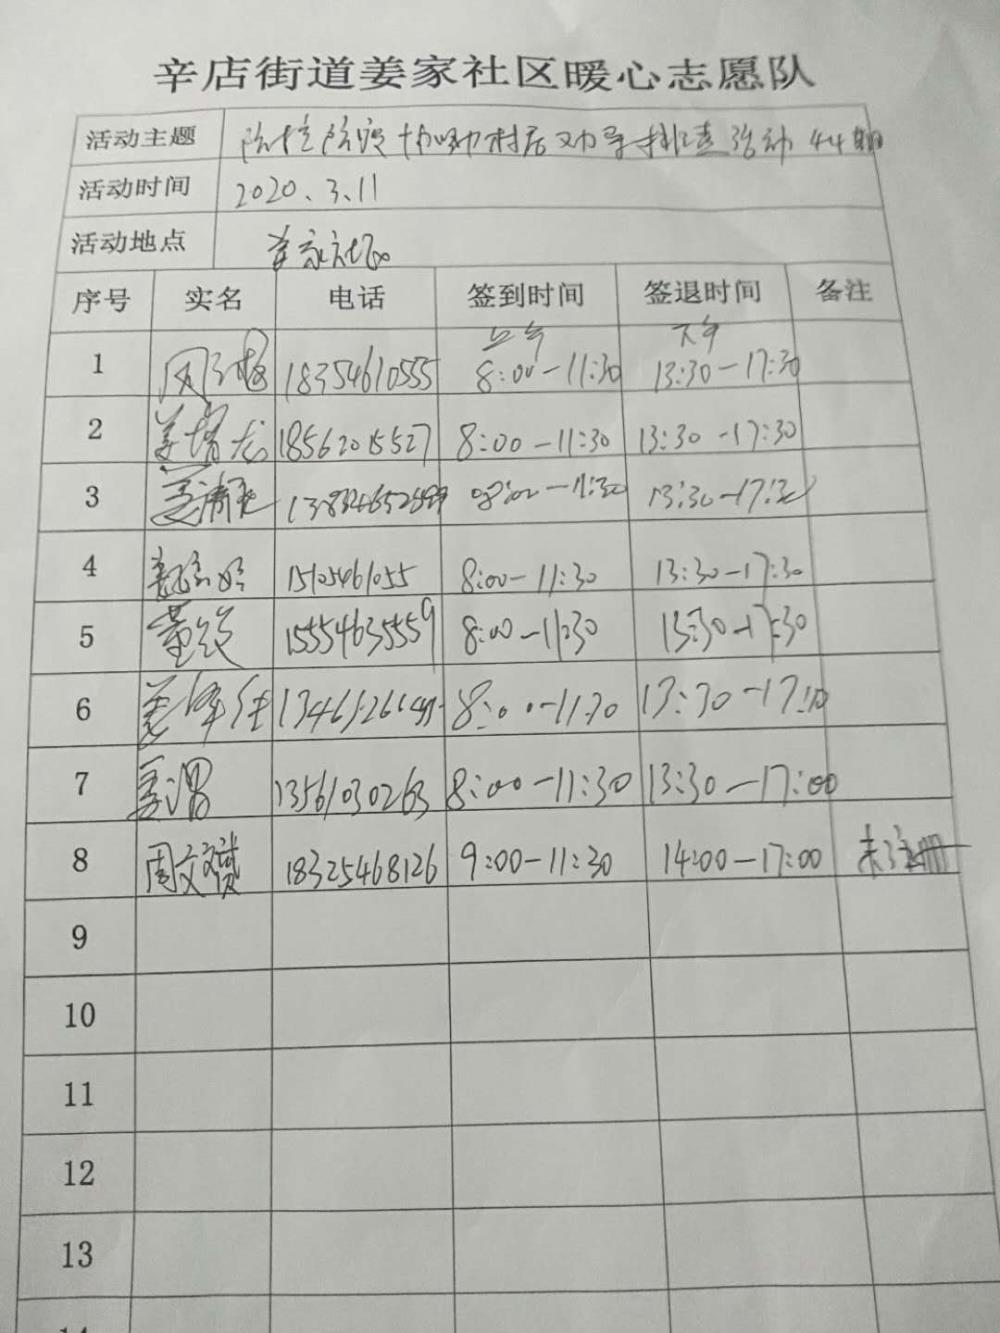 辛店街道姜家社区暖心志愿队
活动主题 防控防疫 协助村居劝导排查活动 44期
活动时间 2020.3.11
活动地点 姜家社区
序号 实名 电话 签到时间 签退时间 备注
上午 下午
1 18354610555 8:00-11:30 13:30-17:30
2 姜增龙 18562015527 8:00-11:30 13:30-17:30
3 姜 08:00-11:30 13:30-17:30
4 15105461055 8:00-11:30 13:30-17:30
5 董 15554635559 8:00-11:30 13:30-17:30
6 姜 8:00-11:30 13:30-17:30
7 姜 13561030263 8:00-11:30 13:30-17:00
8 周文斌 18325468126 9:00-11:30 14:00-17:00 未注册
9
10
11
12
13